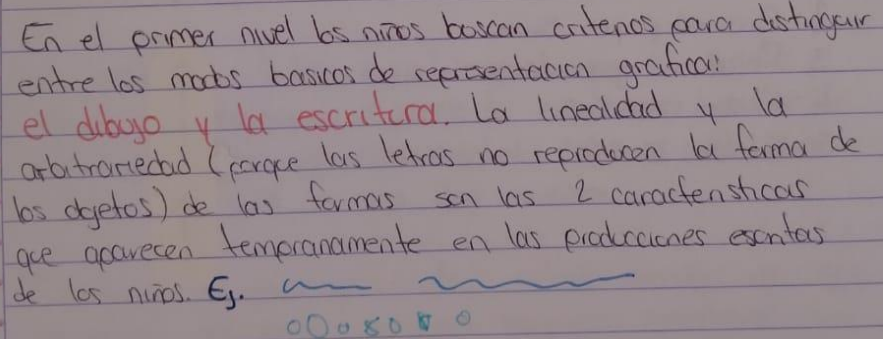 En el primer nivel los niños buscan criterios para distinguir
entre los modos basicos de representación grafica:
el dibujo y la escritura. La linealidad y la
arbitrariedad (porque las letras no reproducen la forma de
los objetos) de las formas son las 2 caracteristicas
que aparecen tempranamente en las producciones escritas
de los niños. Ej.